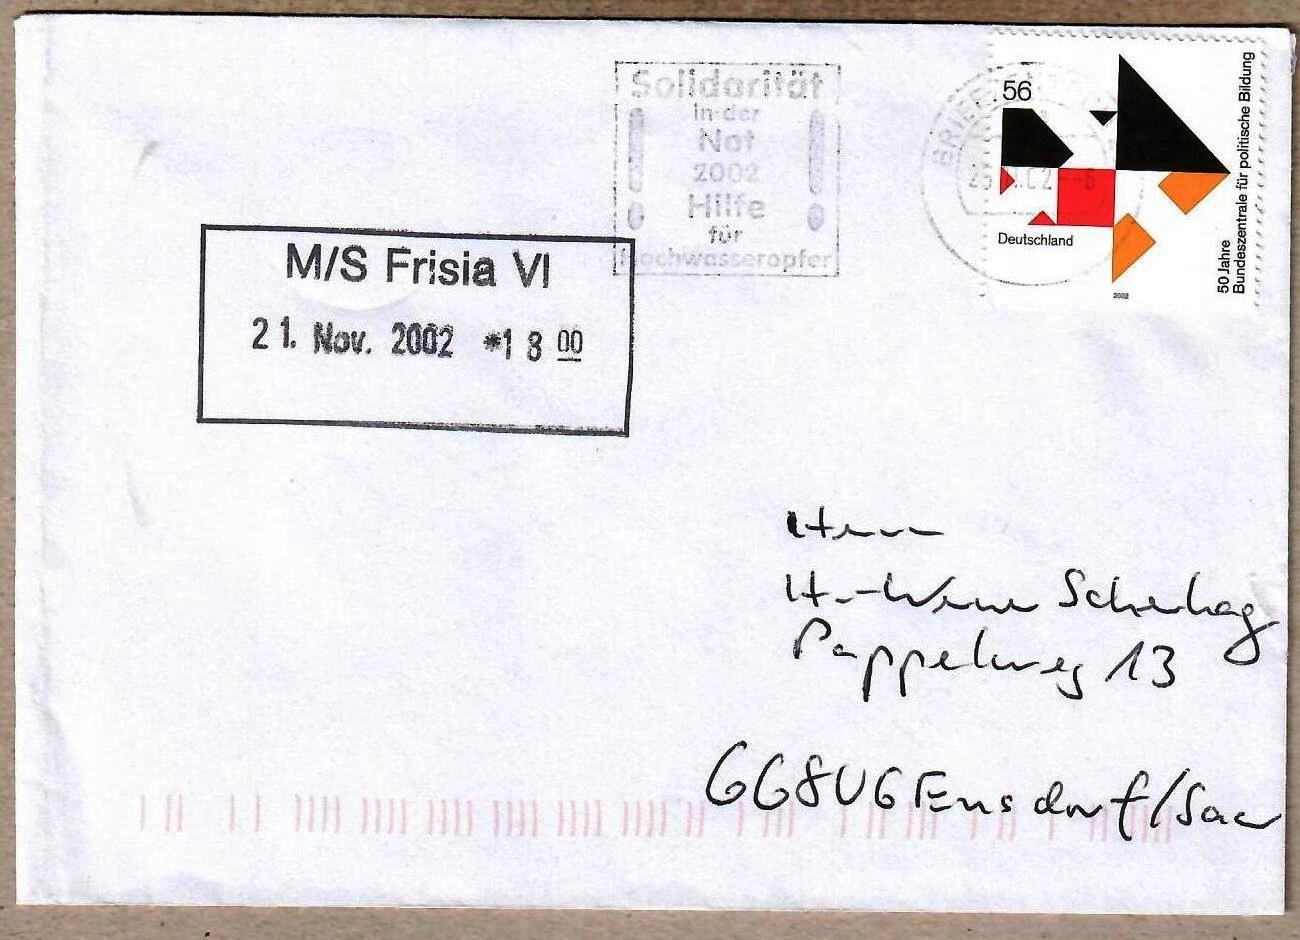 Solidarität
in der
Not
2002
Hilfe
für
Hochwasseropfer
BRIEFZENTRUM
56
Deutschland
2002
50 Jahre
Bundeszentrale für politische Bildung
M/S Frisia VI
21. Nov. 2002 *18 00
Herrn
H.-Werner Scherhag
Pappelweg 13
66806 Ensdorf/Saar